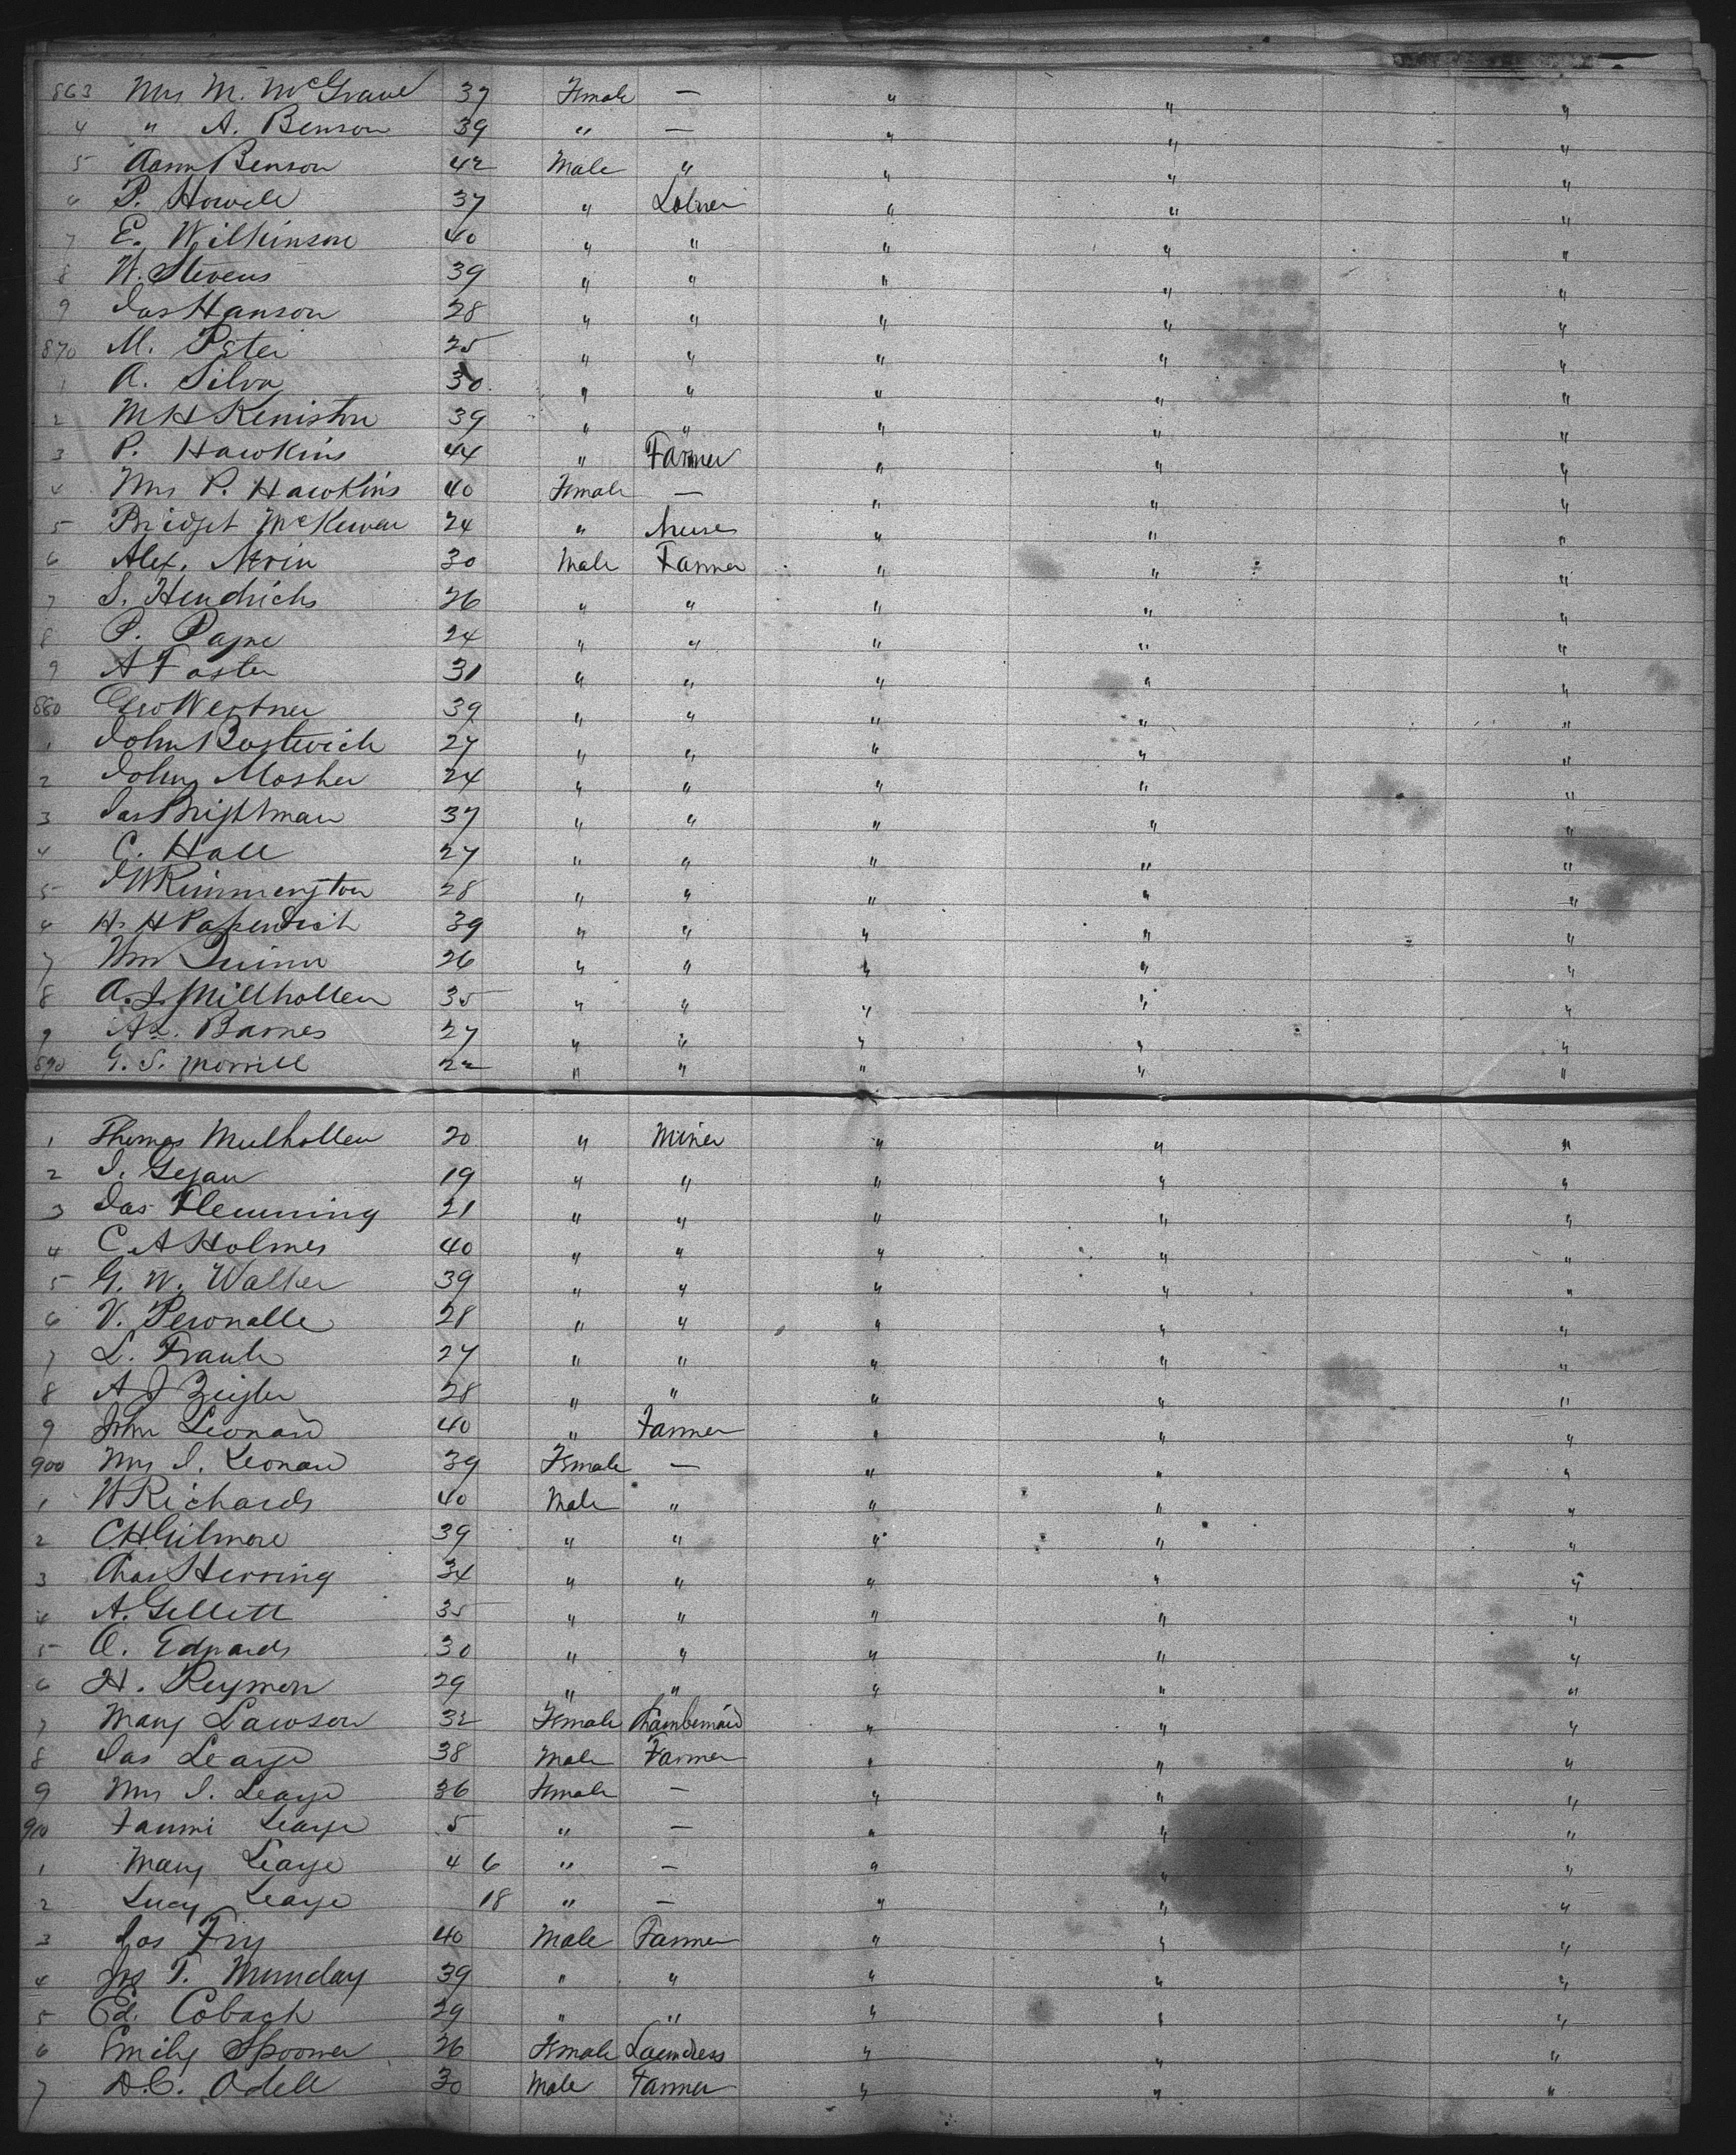 863 Mrs M. McGrave 37 Female — " " "
4 " A. Benson 39 " — " " "
5 Aaron Benson 42 Male " " " "
6 P. Howell 37 " Laborer " " "
7 E. Wilkinson 40 " " " " "
8 W. Stevens 39 " " " " "
9 Jas Hanson 28 " " " " "
870 M. Peter 25 " " " " "
1 A. Silva 30 " " " " "
2 M H Keniston 39 " " " " "
3 P. Hawkins 44 " Farmer " " "
4 Mrs P. Hawkins 40 Female — " " "
5 Bridget McKewen 24 " Nurse " " "
6 Alex. 30 Male Farmer " " "
7 S. Hendrichs 26 " " " " "
8 P. Payne 24 " " " " "
9 A Foster 31 " " " " "
880 Geo Wertner 39 " " " " "
1 John Bostwich 27 " " " " "
2 John Mosher 24 " " " " "
3 Jas Brightman 37 " " " " "
4 C. Hall 27 " " " " "
5 J W Rimmington 28 " " " " "
6 H. H 39 " " " " "
7 Wm Quinn 26 " " " " "
8 A. J. Millhollen 35 " " " " "
9 Barnes 27 " " " " "
890 G. S. Morrill 22 " " " " "
1 Thomas Mulhollen 20 " Miner " " "
2 J. Gegan 19 " " " " "
3 Jas Flemming 21 " " " " "
4 C A Holmes 40 " " " " "
5 G. W. Walker 39 " " " " "
6 V. Peronalle 28 " " " " "
7 L. Frank 27 " " " " "
8 A J Zeigler 28 " " " " "
9 John Leonard 40 " Farmer " " "
900 Mrs J. Leonard 39 Female — " " "
1 W Richards 40 Male " " " "
2 C. H. Gilmore 39 " " " " "
3 Chas Herring 34 " " " " "
4 A. Gellett 35 " " " " "
5 O. Edwards 30 " " " " "
6 H. Reymon 29 " " " " "
7 Mary Lawson 32 Female Chambermaid " " "
8 Jas Leaye 38 Male Farmer " " "
9 Mrs J. Leaye 36 Female — " " "
910 Fanni Leaye 5 " — " " "
1 Mary Leaye 4 6 " — " " "
2 Lucy Leaye 18 " — " " "
3 Jos Fry 40 Male Farmer " " "
4 Jos T. Munday 39 " " " " "
5 Ed. Cobach 29 " " " " "
6 Emily Spooner 26 Female Laundress " " "
7 D. C. Odell 30 Male Farmer " " "